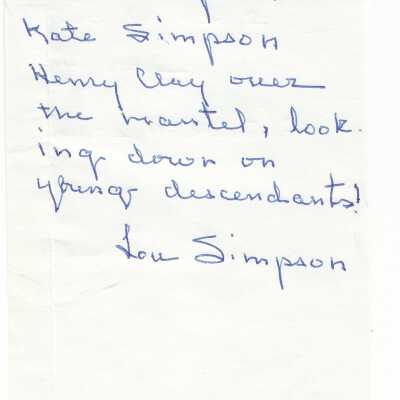 Kate Simpson
Henry Clay over
the mantel, look-
ing down on
young descendants!
Lou Simpson